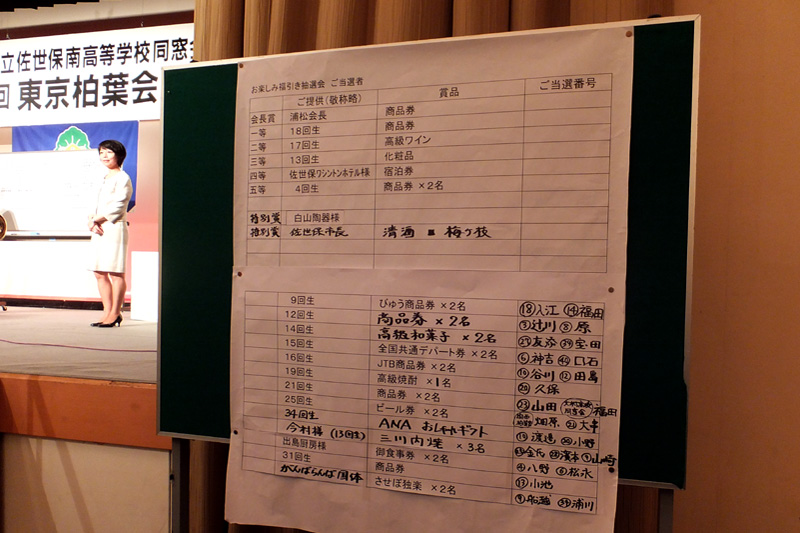 立佐世保南高等学校同窓
回 東京柏葉会
お楽しみ福引き抽選会 ご当選者
ご提供（敬称略） 賞品 ご当選番号
会長賞 浦松会長 商品券
一等 18回生 商品券
二等 17回生 高級ワイン
三等 13回生 化粧品
四等 佐世保ワシントンホテル様 宿泊券
五等 4回生 商品券 ×2名
特別賞 白山陶器様
特別賞 佐世保市長 清酒 梅ヶ枝
9回生 びゅう商品券 ×2名 ⑱入江 ⑭福田
12回生 商品券 ×2名 ③辻川 ⑧原
14回生 高級和菓子 ×2名 友添 宝田
15回生 全国共通デパート券 ×2名 ⑥神吉 口石
16回生 JTB商品券 ×2名 ⑲谷川 ⑫田島
19回生 高級焼酎 ×1名 ⑳久保
21回生 商品券 ×2名 山田 福田
25回生 ビール券 ×2名 畑原 大串
34回生 ANA おしゃれギフト ⑮渡邉 小野
今村様（13回生） 三川内焼 ×3名 金氏 濱本 山崎
出島厨房様 御食事券 ×2名 ④八野 ⑥松永
31回生 商品券 ⑬小池
がんばらんば国体 させぼ独楽 ×2名 ⑨船越 浦川